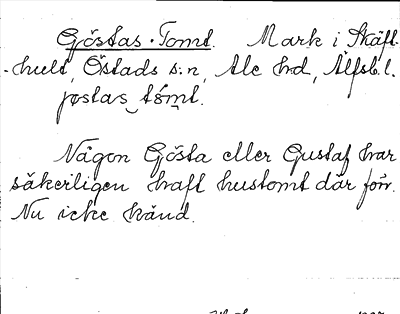 Göstas-Tomt. Mark i Skäft-
-hult, Östads s:n, Ale hd, Älfsb. l.
jøstas tômt.
Någon Gösta eller Gustaf har
säkerligen haft hustomt där förr.
Nu icke känd.